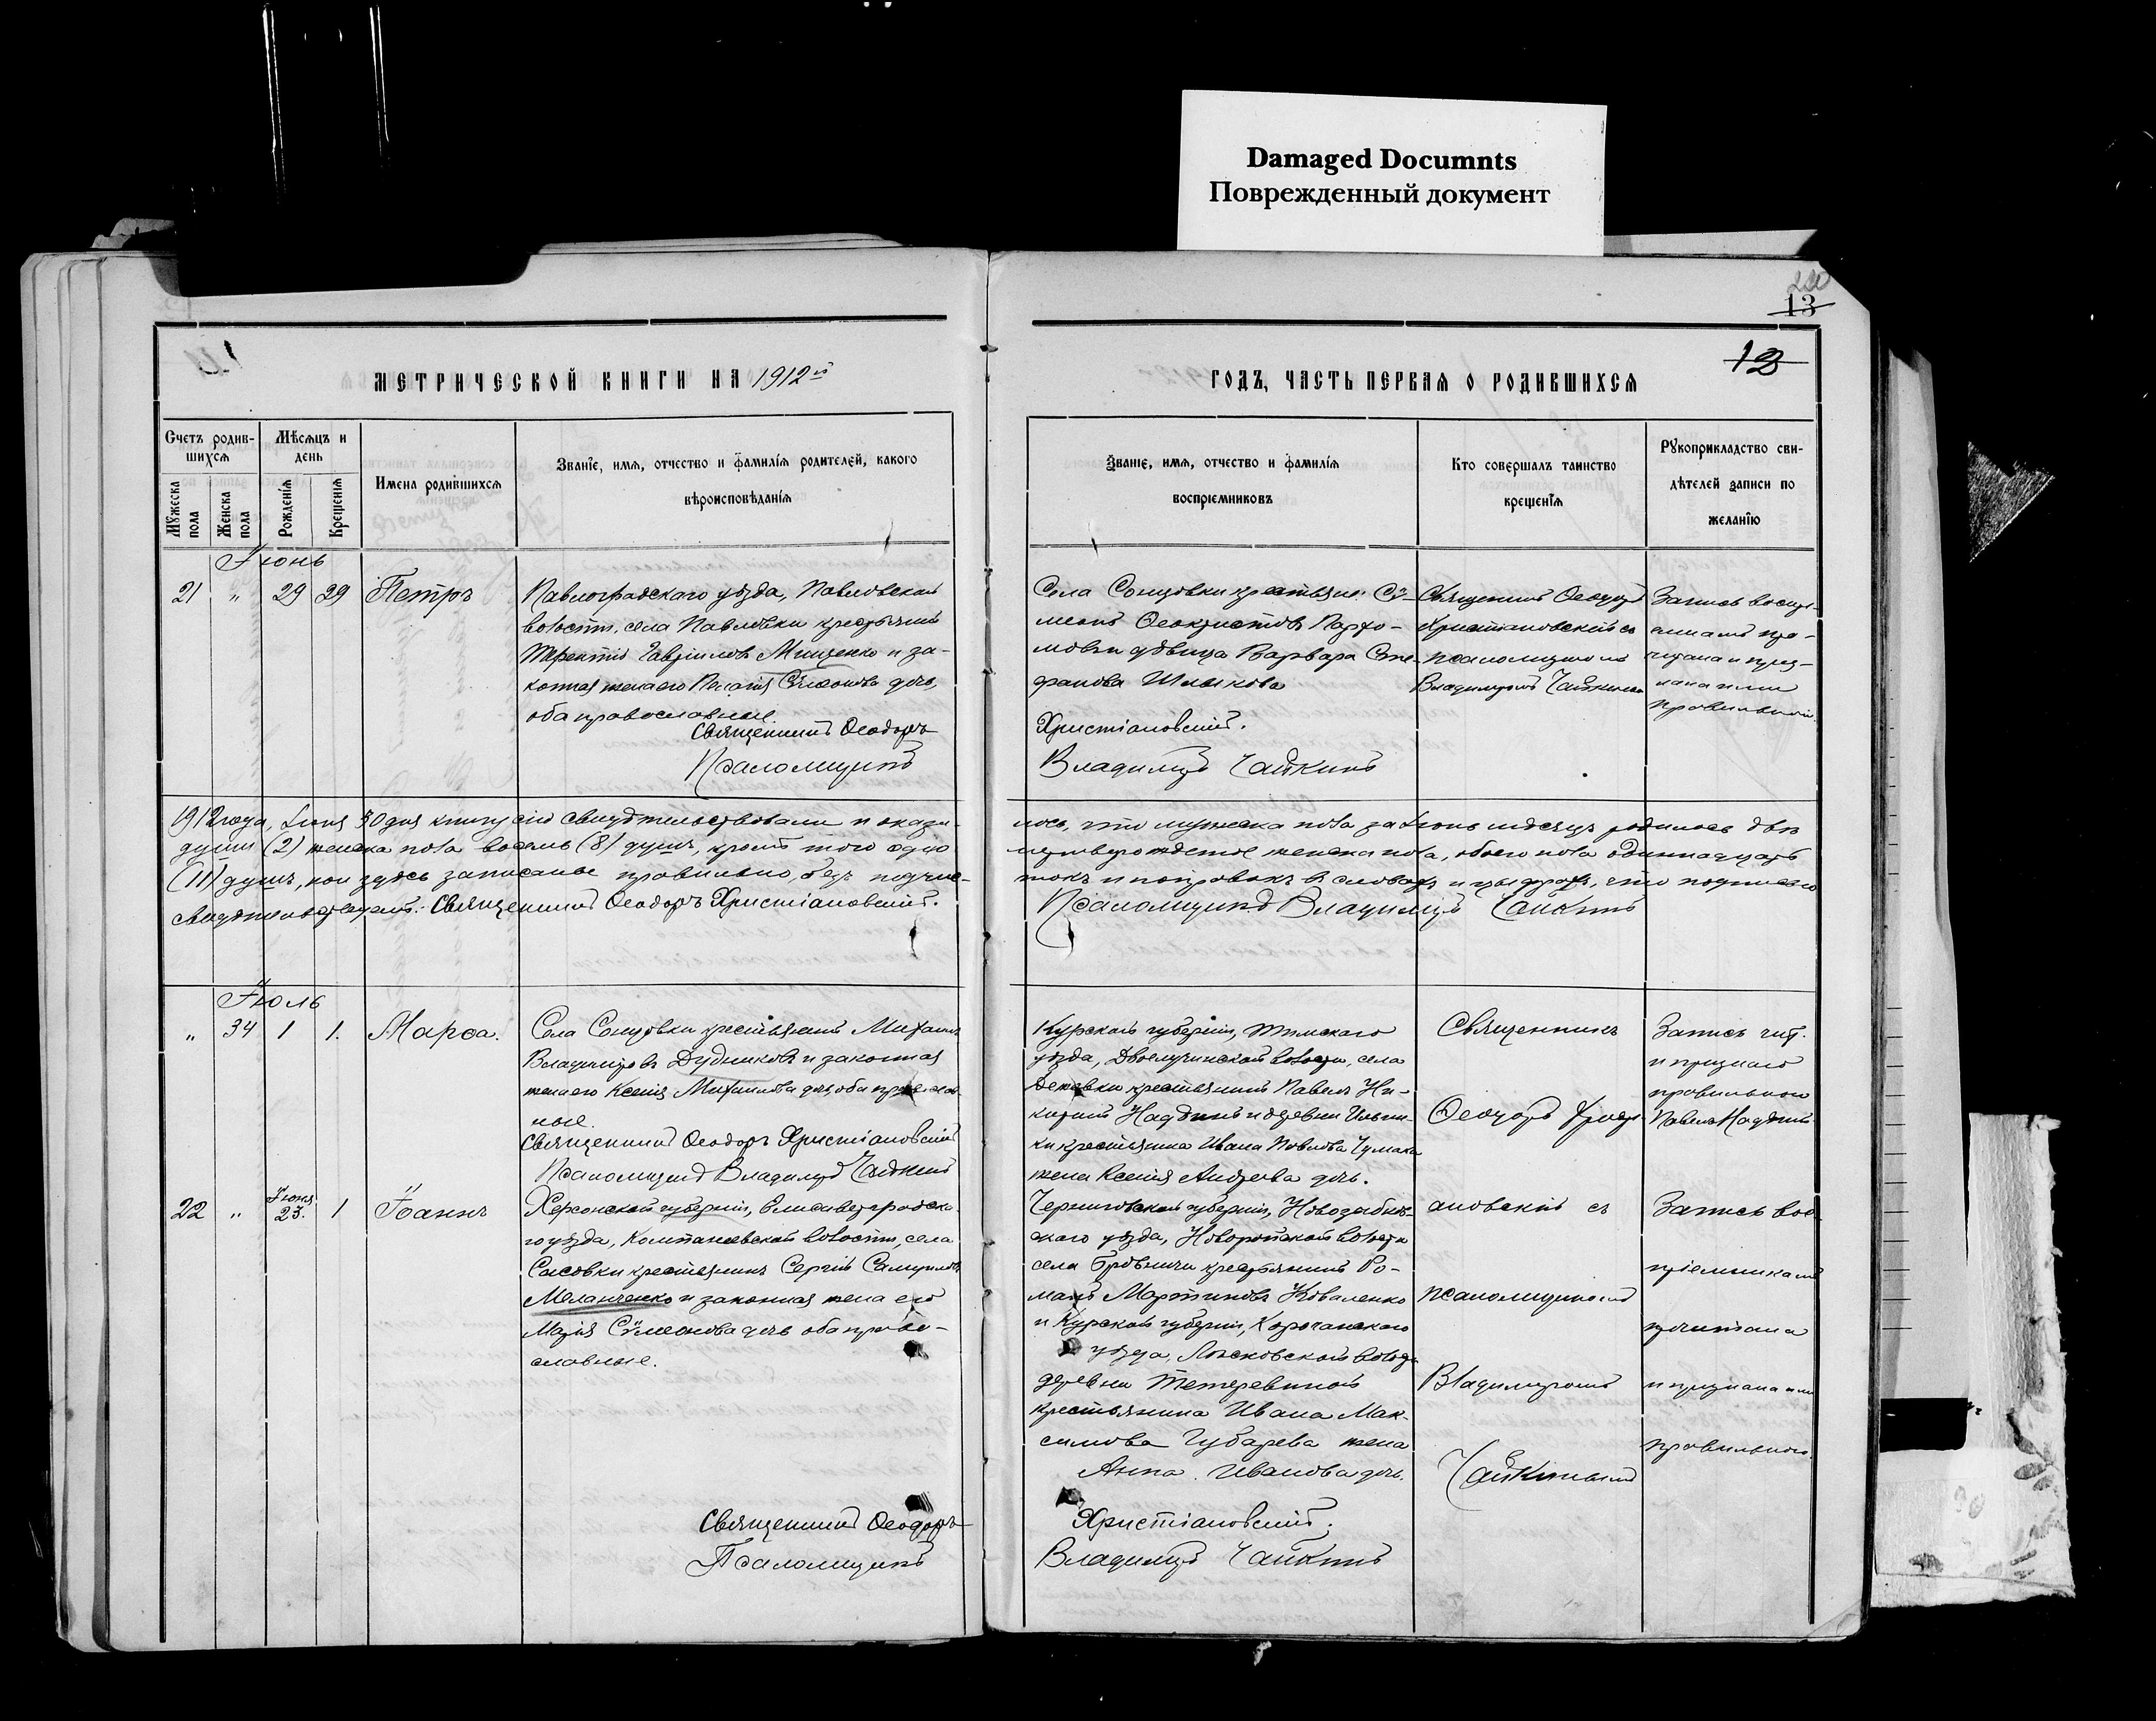 Damaged Documnts
Поврежденный документ
13
12
МЕТРИЧЕСКОЙ КНИГИ НА 1912й
ГОДЪ, ЧАСТЬ ПЕРВАЯ О РОДИВШИХСЯ
Счетъ родив-
шихся
Мѣсяцъ и
день
Мужеска пола
Женска пола
Рожденія
Крещенія
Имена родившихся
Званіе, имя, отчество и фамилія родителей, какого
вѣроисповѣданія
Званіе, имя, отчество и фамилія
воспріемниковъ
Кто совершалъ таинство
крещенія
Рукоприкладство сви-
дѣтелей записи по
желанію
Іюнь
21 " 29 29 Петръ
Павлоградскаго уѣзда, Павловской
волости, села Павловки крестьянинъ
Терентій Гавріиловъ Мищенко и за-
конная жена его Пелагія Сѵмеонова дочь,
оба православные.
Священникъ Ѳеодоръ
Псаломщикъ
Села Сонцовки крестьяне: Сѵ-
меонъ Ѳеоктистовъ
дѣвица Варвара Сте-
фанова Шлыкова
Христіановскій.
Владиміръ Чайкинъ
Священникъ Ѳеодоръ
Христіановскій съ
псаломщикомъ
Владиміромъ Чайкинымъ
Запись воспрі-
емникамъ про-
читана и приз-
нана ими
правильной.
1912 года, Іюня 30 дня книгу сію свидѣтельствовали и оказа-
лось, что мужеска пола за Іюнь мѣсяцъ родилось двѣ
души (2) женска пола восемь (8) душъ, кромѣ того одно
мертворожденное женска пола, обоего пола одиннадцать
(11) душъ, кои здѣсь записаны правильно, безъ подчис-
токъ и поправокъ въ словахъ и цыфрахъ, что подписью
свидѣтельствуемъ: Священникъ Ѳеодоръ Христіановскій.
Псаломщикъ Владиміръ Чайкинъ
Іюль
" 34 1 1. Марѳа.
Села Сонцовки крестьянинъ Михаилъ
Владиміровъ Дудниковъ и законная
жена его Ксенія Михаилова дочь, оба православ-
ные.
Священникъ Ѳеодоръ Христіановскій
Псаломщикъ Владиміръ Чайкинъ
Курской губерніи, Тимскаго
уѣзда, Двоелучинской волости, села
крестьянинъ Павелъ Ни-
китинъ и деревни Ильин-
ки крестьянина Ивана Павлова Чумака
жена Ксенія Андреева дочь.
Священникъ
Ѳеодоръ Христі-
Запись чит.
и признаю
правильною
Павелъ
22 " Іюня 23. 1 Іоаннъ
Херсонской губерніи, Елисаветградска-
го уѣзда, Компанеевской волости, села
Сасовки крестьянинъ Сергій Самуиловъ
Меланченко и законная жена его
Марія Сѵмеонова дочь оба право-
славные.
Священникъ Ѳеодоръ
Псаломщикъ
Черниговской губерніи, Новозыбков-
скаго уѣзда, Новоропской волости
села Бровничи крестьянинъ Ро-
манъ Мартиновъ Коваленко
и Курской губерніи, Корочанскаго
уѣзда,
деревни Тетеревиной
крестьянина Ивана Мак-
симова Губарева жена
Анна Иванова дочь.
Христіановскій.
Владиміръ Чайкинъ
ановскій съ
псаломщикомъ
Владиміромъ
Чайкинымъ
Запись вос-
пріемникамъ
прочитана
и признана ими
правильною.